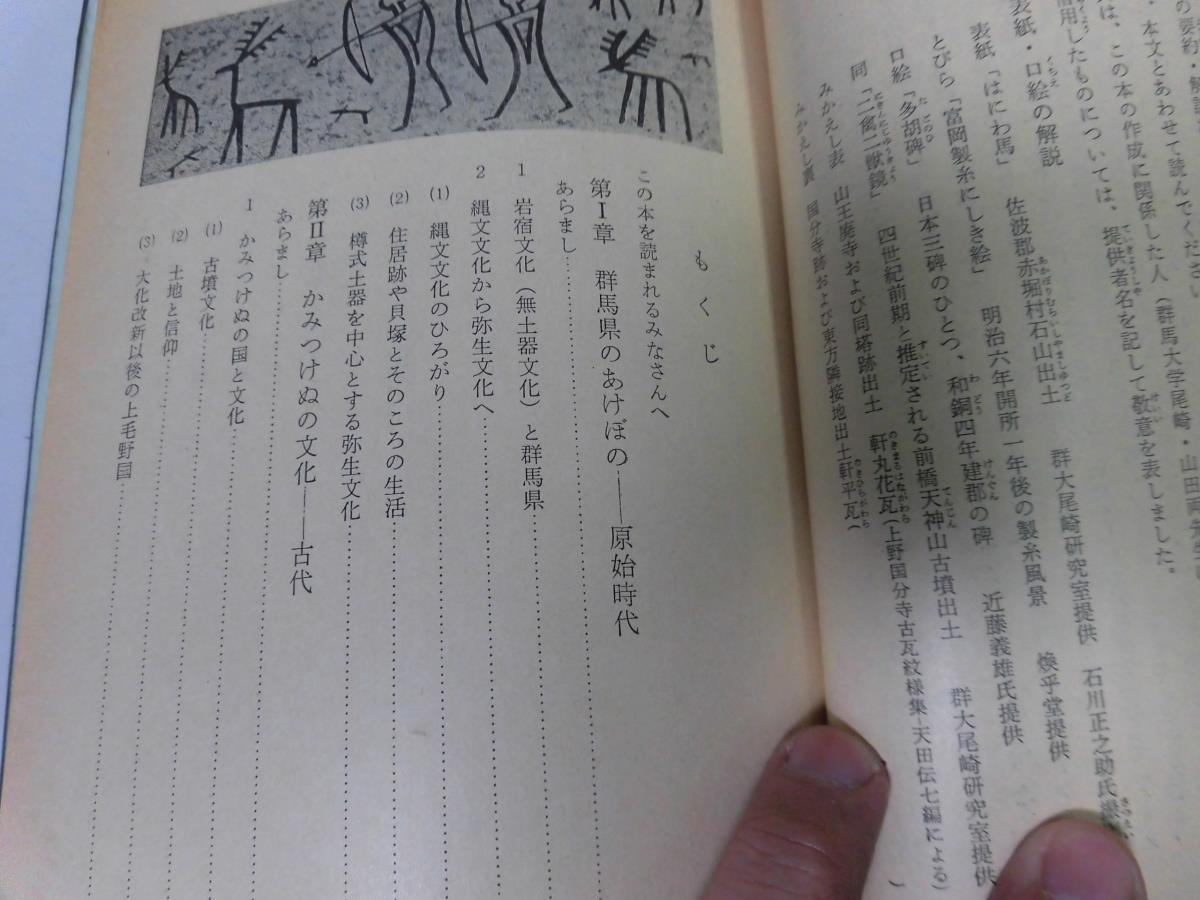 の要約・解説
・本文とあわせて読んでください
は、この本の作成に関係した人(群馬大学尾崎・山田両
借用したものについては、提供者名を記して敬意を表しました。
表紙・口絵の解説
表紙「はにわ馬」 佐波郡赤堀村石山出土 群大尾崎研究室提供 石川正之助氏撮
とびら「富岡製糸にしき絵」 明治六年開所一年後の製糸風景 煥乎堂提供
口絵「多胡碑」 日本三碑のひとつ、和銅四年建郡の碑 近藤義雄氏提供
同「二禽二獣鏡」 四世紀前期と推定される前橋天神山古墳出土 群大尾崎研究室提供
みかえし表 山王廃寺および同塔跡出土 軒丸花瓦(上野国分寺古瓦紋様集―天田伝七編による)
みかえし裏 国分寺跡および東方隣接地出土軒平瓦( )
もくじ
この本を読まれるみなさんへ
第Ⅰ章 群馬県のあけぼの――原始時代
あらまし
1 岩宿文化(無土器文化)と群馬県
2 縄文文化から弥生文化へ
(1) 縄文文化のひろがり
(2) 住居跡や貝塚とそのころの生活
(3) 樽式土器を中心とする弥生文化
第Ⅱ章 かみつけぬの文化――古代
あらまし
1 かみつけぬの国と文化
(1) 古墳文化
(2) 土地と信仰
(3) 大化改新以後の上毛野国